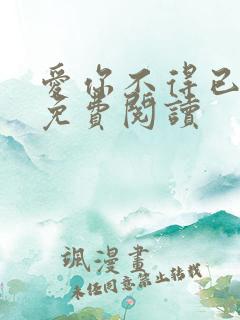 愛你不得已
免費閱讀
颯漫畫
未任同意禁止轉載